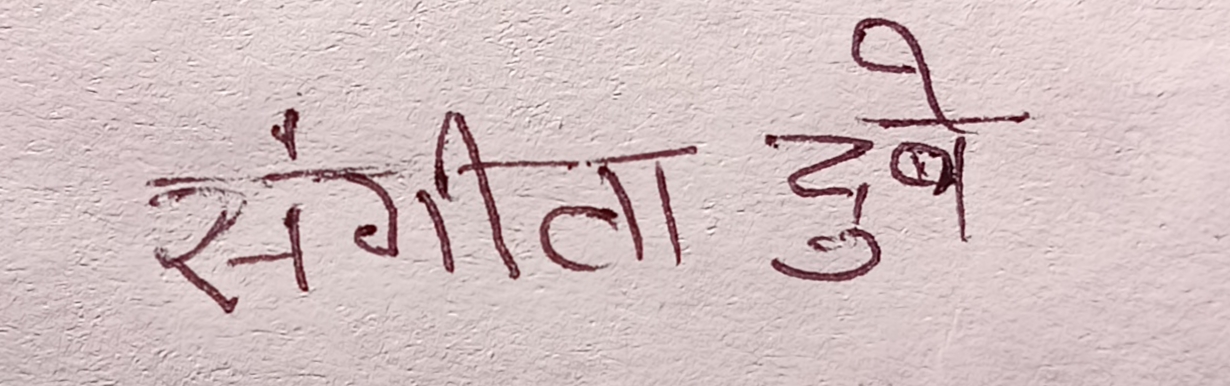 संगीता दुबे